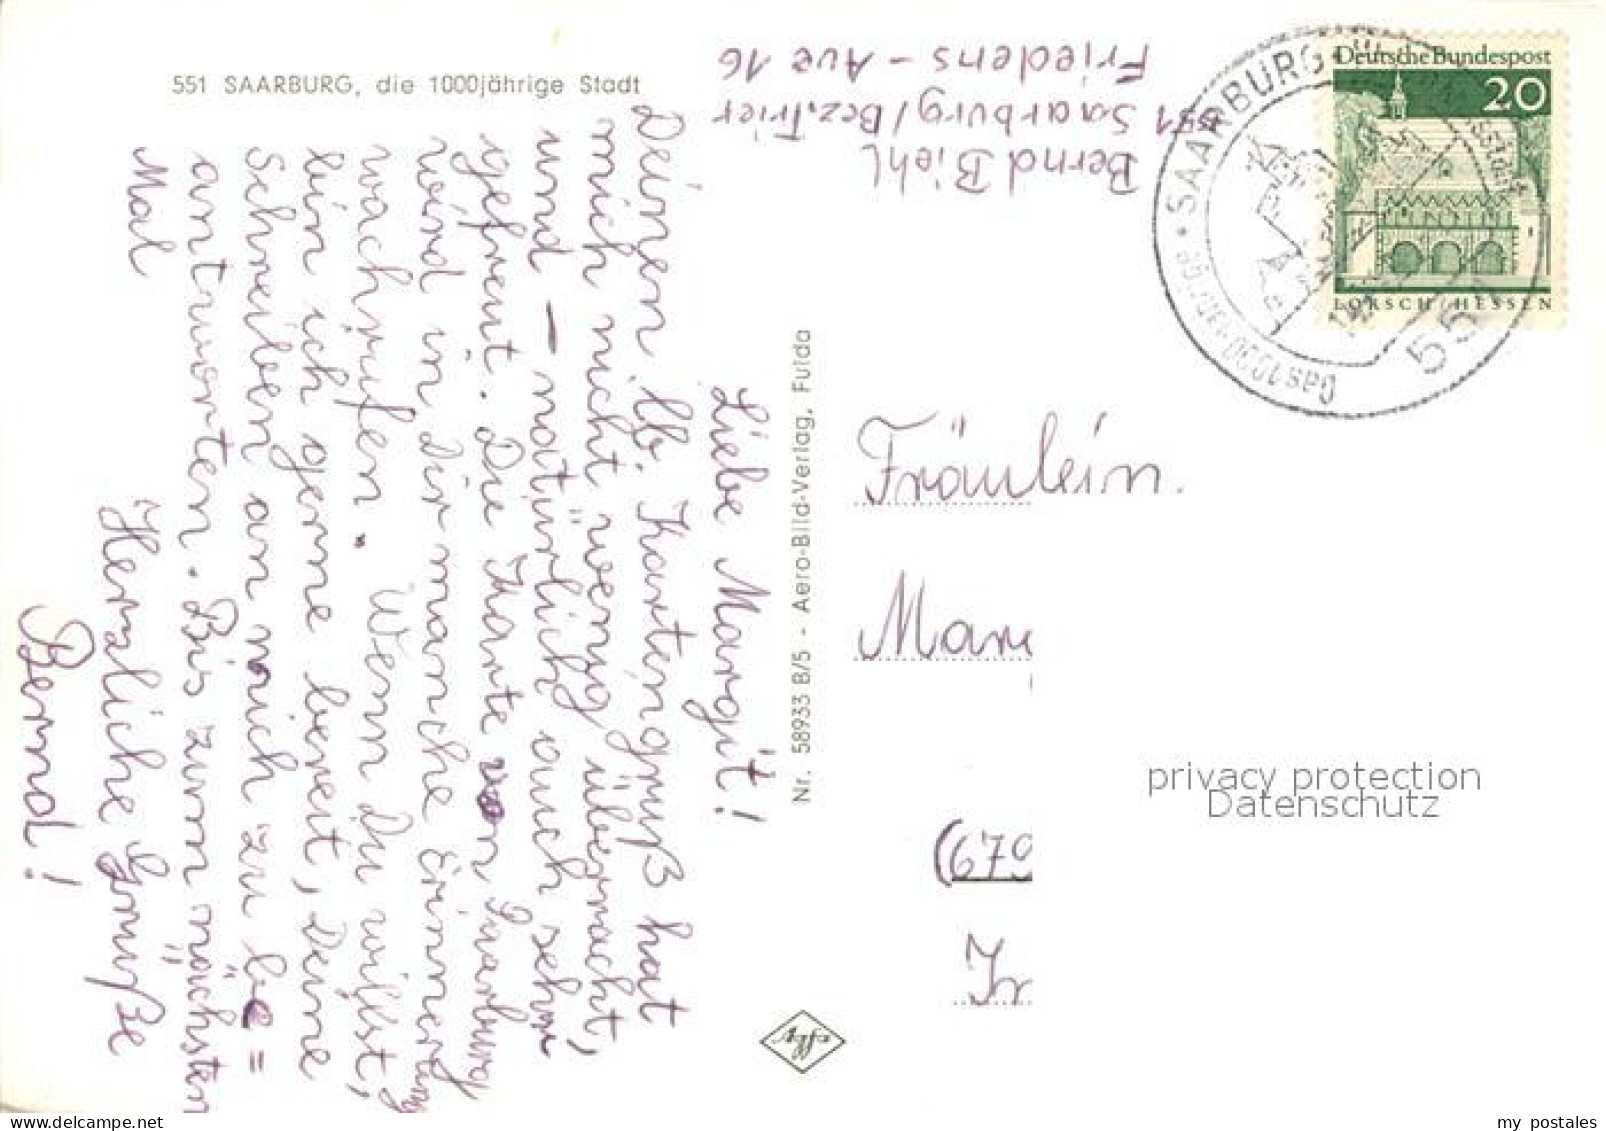 551 SAARBURG, die 1000jährige Stadt
Bernd Biehl
551 Saarburg/Bez.Trier
Friedens-Aue 16
Deutsche Bundespost
20
LORSCH HESSEN
SAARBURG
551
Liebe Margit!
Deinen lb. Kartengruß hat
mich nicht wenig überrascht,
und - natürlich auch sehr
gefreut. Die Karte von Saarburg
wird in Dir manche Erinnerung
wachrufen. Wenn Du willst,
bin ich gerne bereit, Deine
Schreiben an mich zu be=
antworten. Bis zum nächsten
Mal
Herzliche Grüße
Bernd!
Nr. 58933 B/5 - Aero-Bild-Verlag, Fulda
Fräulein.
Mar
(679
privacy protection
Datenschutz
my postales